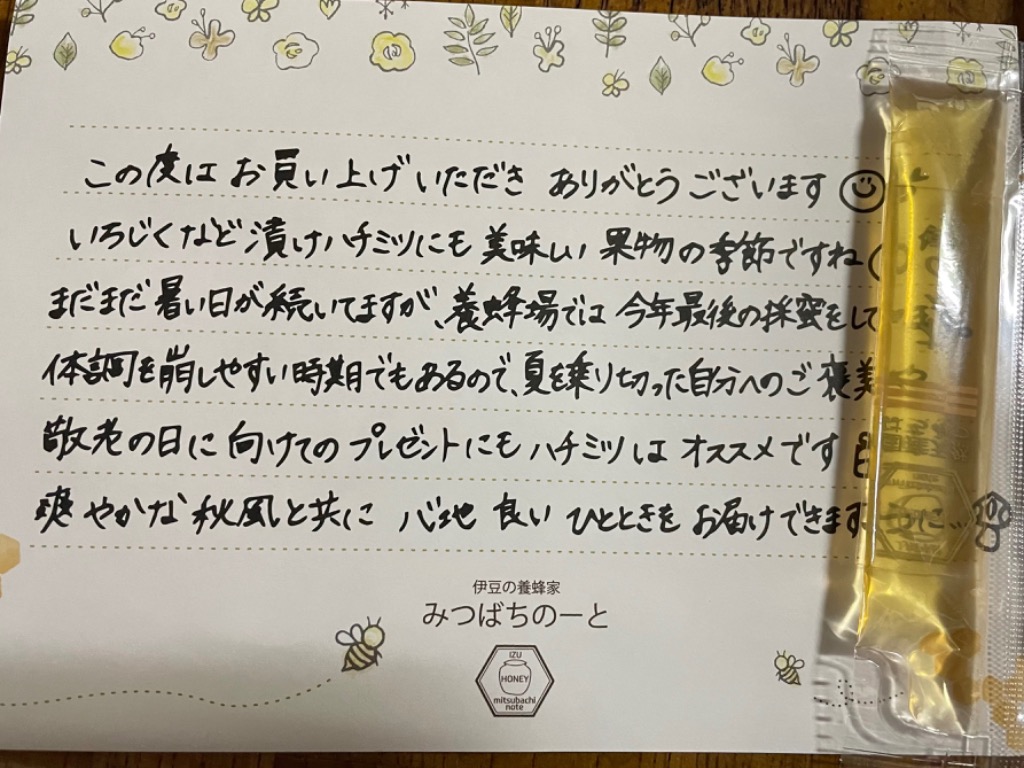 この度は お買い上げいただき ありがとうございます
いちじくなど漬けハチミツにも 美味しい 果物の季節ですね
まだまだ暑い日が続いてますが、養蜂場では 今年最後の採蜜をして
体調を崩しやすい時期でもあるので、夏を乗り切った自分へのご褒美
敬老の日に向けてのプレゼントにもハチミツはオススメです
爽やかな秋風と共に 心地良いひとときをお届けできますように…
伊豆の養蜂家
みつばちのーと
IZU
HONEY
mitsubachi
note